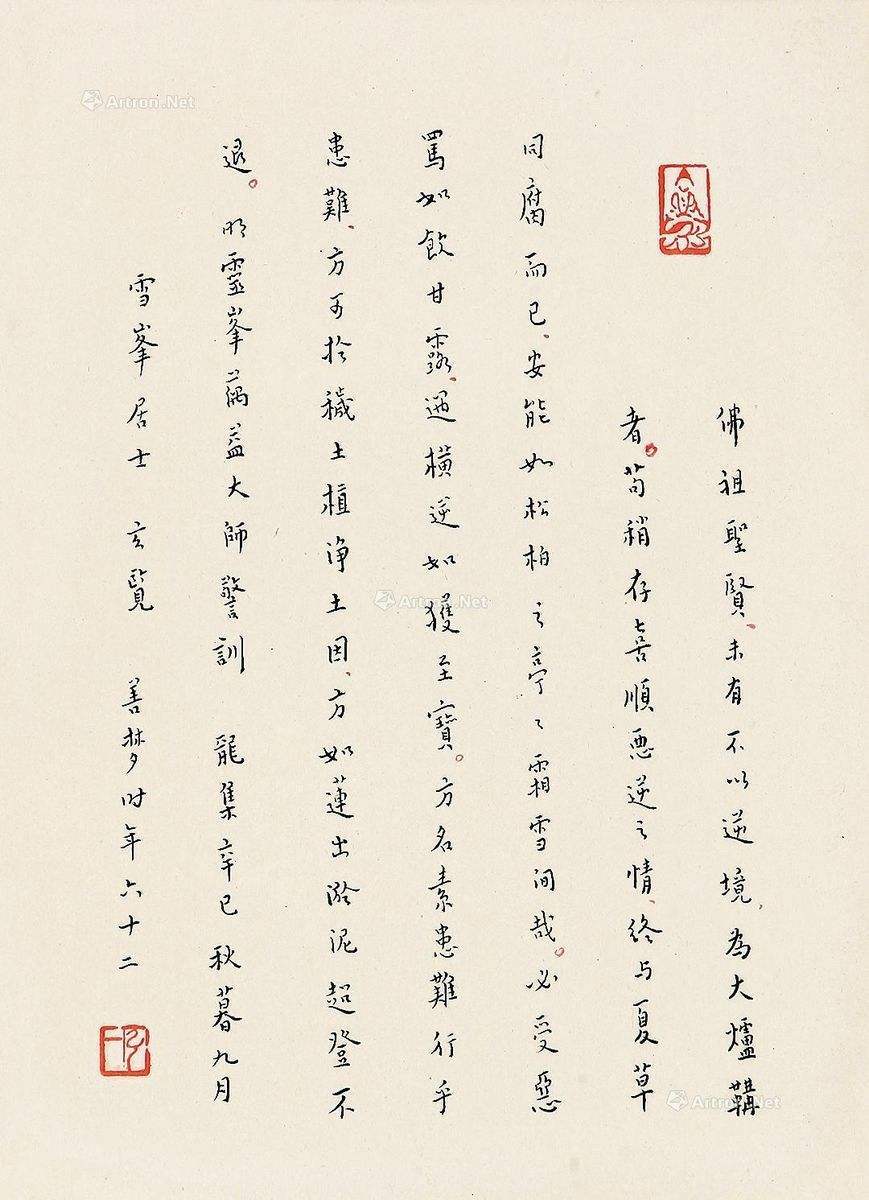 佛祖聖賢、未有不以逆境、為大爐鞴
者。苟稍存喜順惡逆之情、終与夏草
同腐而已、安能如松柏之亭々霜雪间哉。必受惡
罵如飲甘露、遇橫逆如獲至寶。方名素患難行乎
患難、方可於穢土植淨土因、方如蓮出淤泥超登不
退。明靈峯蕅益大師警訓 龍集辛巳秋暮九月
雪峯居士 玄覽 善梦时年六十二
Artron.Net
Artron.Net
Artron.Net